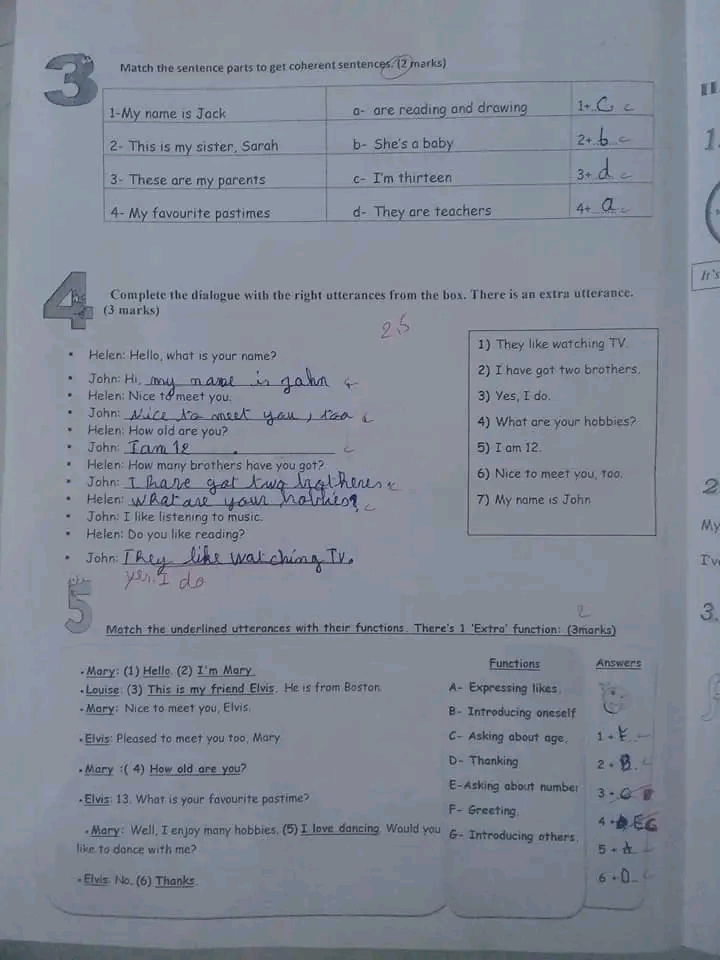 3
Match the sentence parts to get coherent sentences. (2 marks)
1-My name is Jack a- are reading and drawing 1+ C
2- This is my sister, Sarah b- She's a baby 2+ b
3- These are my parents c- I'm thirteen 3+ d
4- My favourite pastimes d- They are teachers 4+ a
4
Complete the dialogue with the right utterances from the box. There is an extra utterance.
(3 marks)
2,5
• Helen: Hello, what is your name?
• John: Hi, my name is john
• Helen: Nice to meet you.
• John: Nice to meet you, too
• Helen: How old are you?
• John: I am 12 .
• Helen: How many brothers have you got?
• John: I have got two brothers
• Helen: what are your hobbies?
• John: I like listening to music.
• Helen: Do you like reading?
• John: They like watching TV.
yes. I do
1) They like watching TV.
2) I have got two brothers.
3) Yes, I do.
4) What are your hobbies?
5) I am 12.
6) Nice to meet you, too.
7) My name is John
5
2
Match the underlined utterances with their functions. There's 1 'Extra' function: (3marks)
• Mary: (1) Hello. (2) I'm Mary.
• Louise: (3) This is my friend Elvis. He is from Boston.
• Mary: Nice to meet you, Elvis.
• Elvis: Pleased to meet you too, Mary
• Mary :( 4) How old are you?
• Elvis: 13. What is your favourite pastime?
• Mary: Well, I enjoy many hobbies, (5) I love dancing. Would you
like to dance with me?
• Elvis: No, (6) Thanks.
Functions
A- Expressing likes.
B- Introducing oneself
C- Asking about age.
D- Thanking
E-Asking about number
F- Greeting.
G- Introducing others.
Answers
1 + F
2 + B
3 +
4 +
5 + A
6 + D
1.
It's
2
My
I've
3.